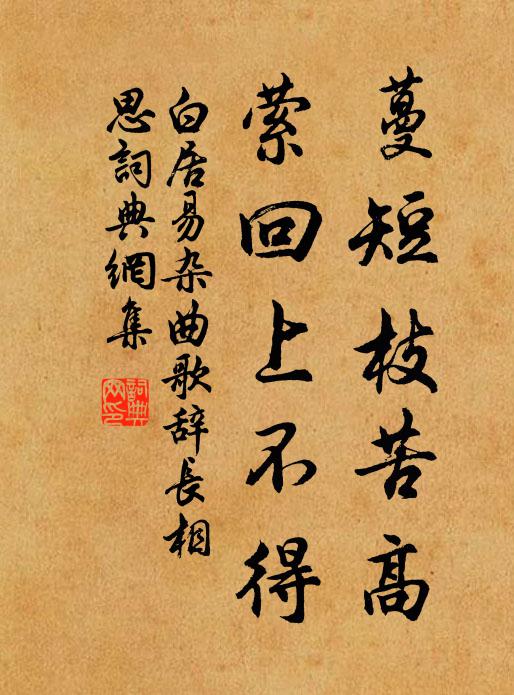 蔓短枝苦高
萦回上不得
白居易杂曲歌辞長相
思詞典網集
詞典
网印